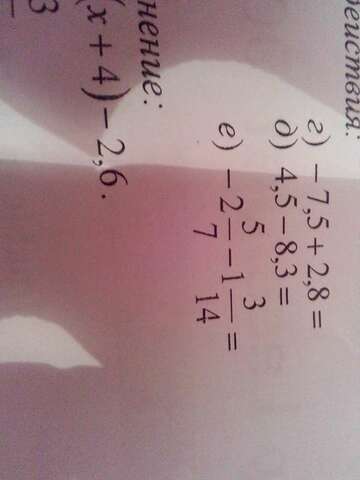 действия:
г) − 7,5 + 2,8 =
д) 4,5 − 8,3 =
е) − 2 5/7 − 1 3/14 =
нение:
(x + 4) − 2,6.
3